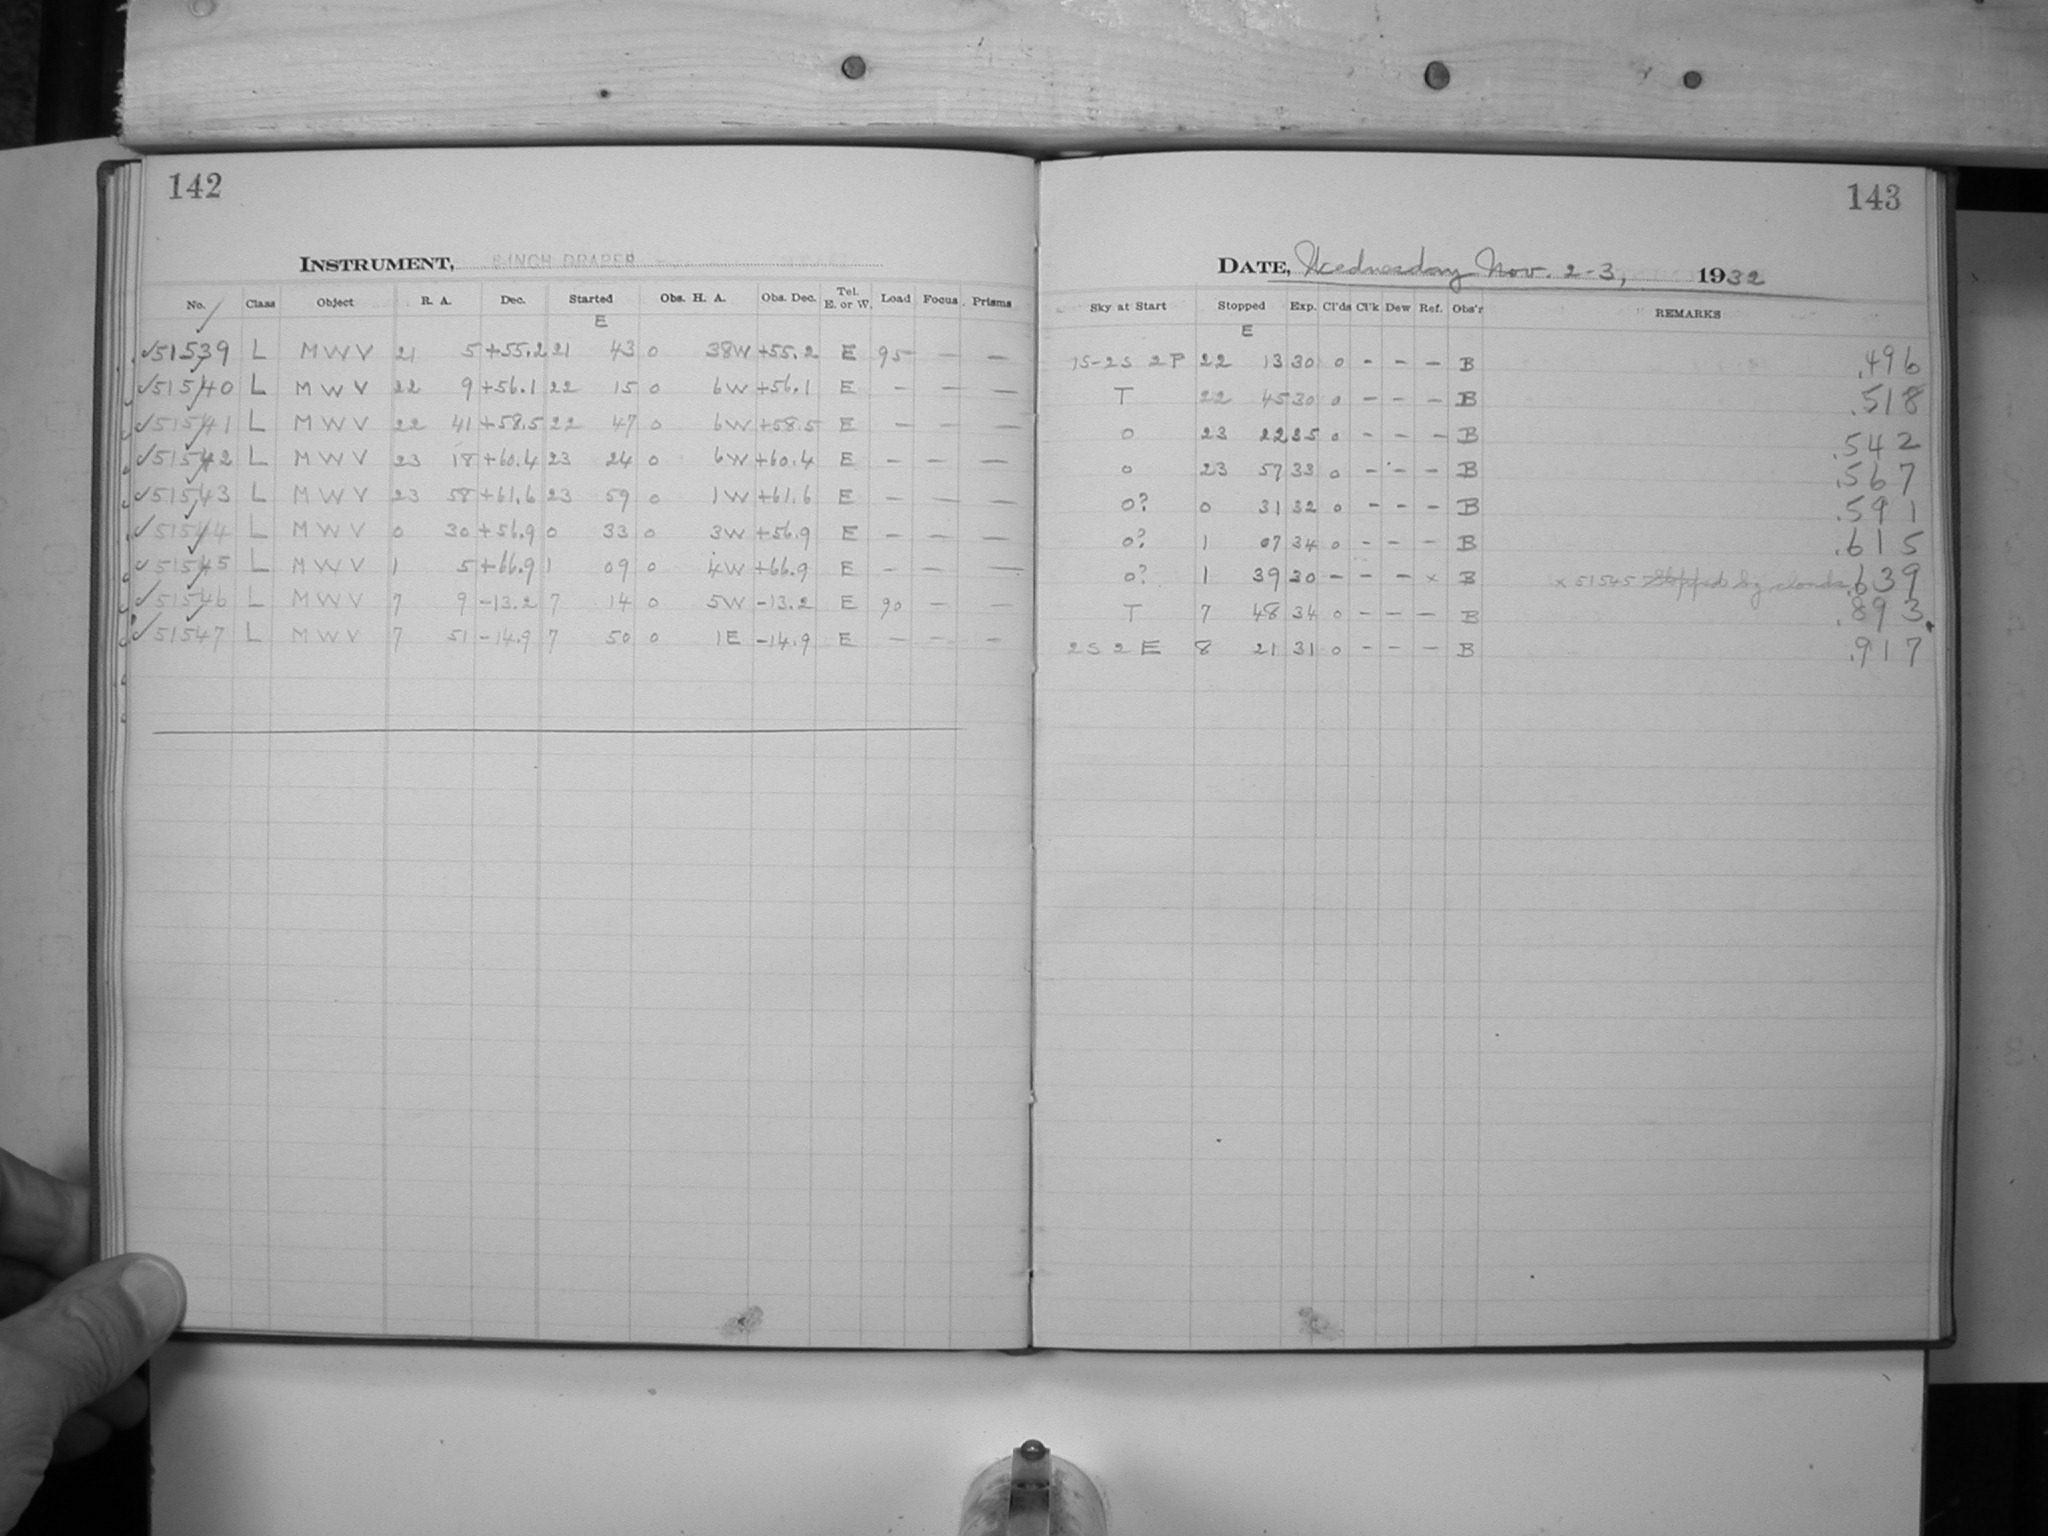 142
INSTRUMENT, 8-INCH DRAPER
No. Class Object R. A. Dec. Started Obs. H. A. Obs. Dec. Tel. E. or W. Load Focus Prisms
E
✓51539 L MWV 21 5 +55.2 21 43 0 38W +55.2 E 95 — —
✓51540 L MWV 22 9 +56.1 22 15 0 6W +56.1 E — — —
✓51541 L MWV 22 41 +58.5 22 47 0 6W +58.5 E — — —
✓51542 L MWV 23 18 +60.4 23 24 0 6W +60.4 E — — —
✓51543 L MWV 23 58 +61.6 23 59 0 1W +61.6 E — — —
✓51544 L MWV 0 30 +56.9 0 33 0 3W +56.9 E — — —
✓51545 L MWV 1 5 +66.9 1 09 0 4W +66.9 E — — —
✓51546 L MWV 7 9 -13.2 7 14 0 5W -13.2 E 90 — —
✓51547 L MWV 7 51 -14.9 7 50 0 1E -14.9 E — — —
143
DATE, Wednesday Nov. 2-3, 1932
Sky at Start Stopped Exp. Cl'ds Cl'k Dew Ref. Obs'r REMARKS
E
1S-2S 2P 22 13 30 0 - - - B .496
T 22 45 30 0 - - - B .518
0 23 22 35 0 - - - B .542
0 23 57 33 0 - - - B .567
0? 0 31 32 0 - - - B .591
0? 1 07 34 0 - - - B .615
0? 1 39 30 - - - - x B x 51545 Stopped by clouds .639
T 7 48 34 0 - - - B .893
2S 2E 8 21 31 0 - - - B .917